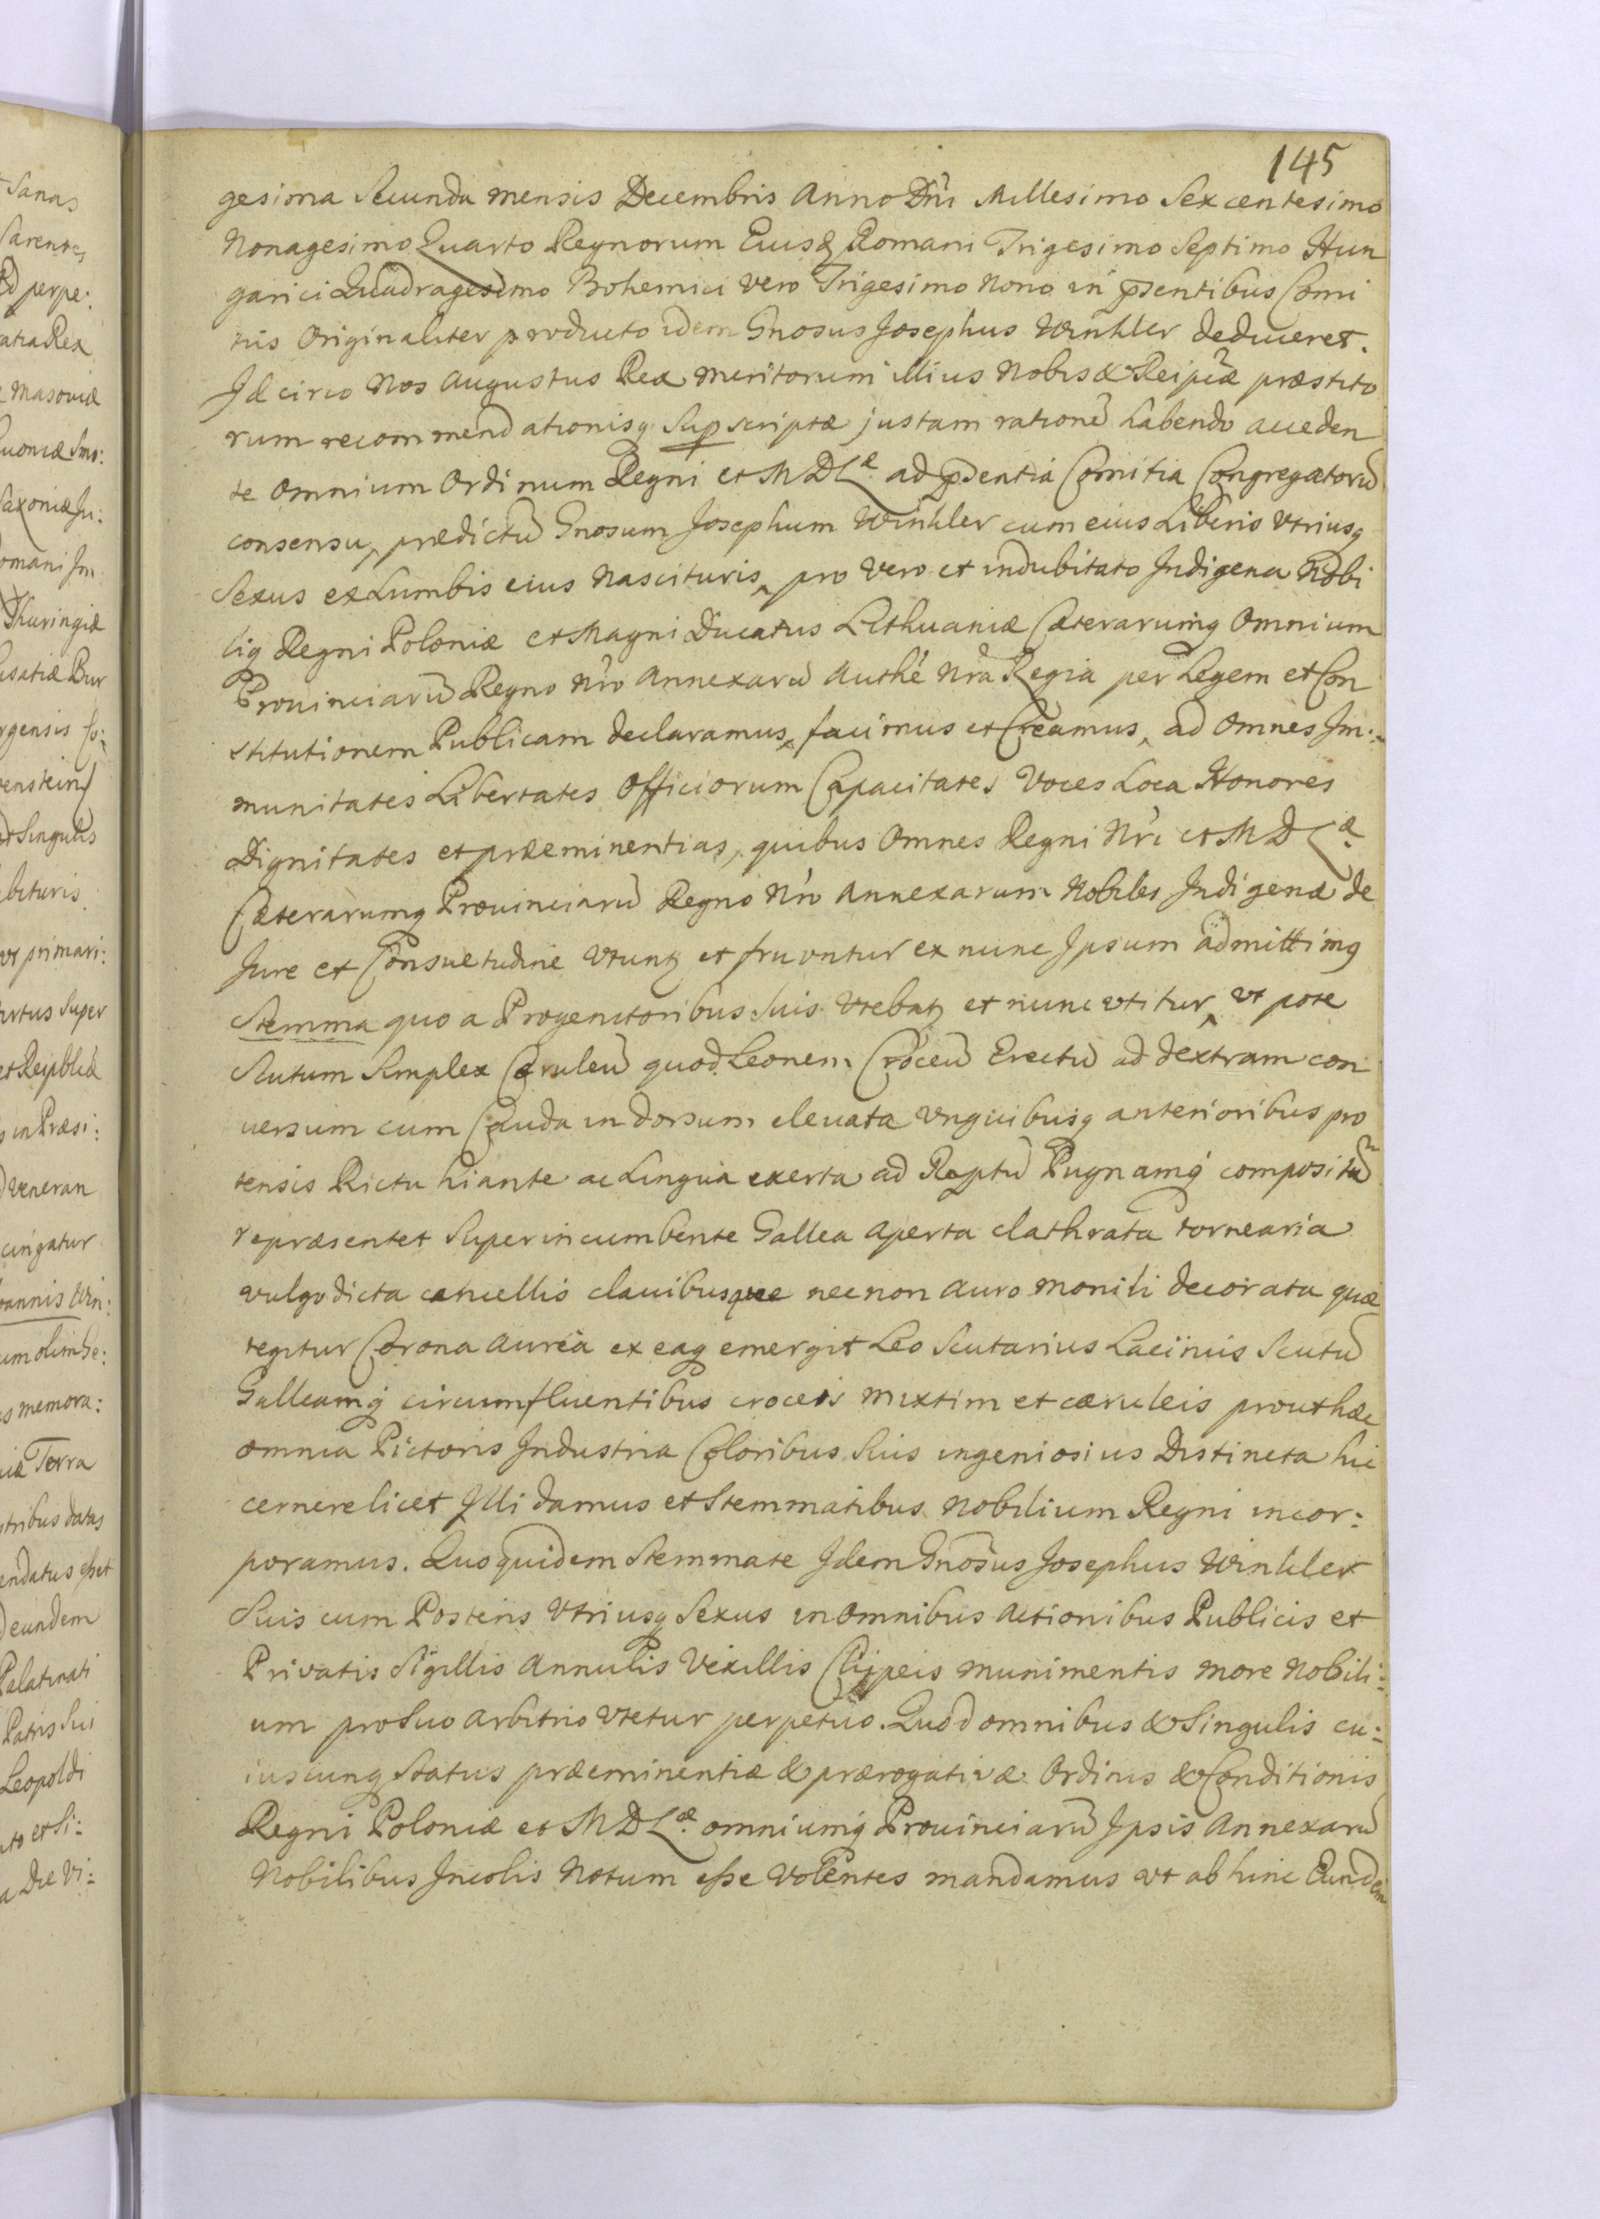 145
gesima Secunda mensis Decembris Anno Dñi Millesimo Sexcentesimo
Nonagesimo Quarto Regnorum Eiusq̃ Romani Trigesimo Septimo Hun
garici Quadragesimo Bohemici vero Trigesimo Nono in p̃sentibus Comi
tiis Originaliter producto idem Gnosus Josephus Winkler deduceret.
Idcirco Nos Augustus Rex meritorum illius Nobis & Reipcæ præstito
rum recommendationisq; Supscriptæ justam rationẽ habendo acceden
te Omnium Ordinum Regni et M D L æ. ad p̃sentia Comitia Congregatorũ
consensu, prædictũ Gnosum Josephum Winkler cum eius Liberis Vtriusq;
Sexus ex Lumbis eius Nascituris, pro Vero et indubitato Indigena Nobi
liq Regni Poloniæ et Magni Ducatus Lithuaniæ Cæterarumq Omnium
Prouinciarũ Regno Nr̃o Annexarũ Authẽ Nr̃a Regia per Legem et Con
stitutionem Publicam declaramus, facimus et Creamus, ad Omnes Im:
munitates Libertates Officiorum Capacitates Voces Loca Honores
Dignitates et præeminentias, quibus Omnes Regni Nr̃i et M D L æ.
Cæterarumq Prouinciarũ Regno Nr̃o Annexarum Nobiles Indigenæ de
Jure et Consuetudine Vtunt; et fruuntur ex nunc Ipsum admittimq
Stemma quo a Progenitoribus Suis Vtebat; et nunc vtitur, vt pote
Scutum Simplex Cæruleũ quod Leonem Croceũ Erectũ ad dextram con
uersum cum Cauda in dorsum eleuata Vnguibusq anterioribus pro
tensis Rictu hiante ac Lingua exerta ad Raptũ Pugnamq compositũ
repræsentet Superincumbente Gallea Aperta clathrata tornearia
vulgo dicta cancellis clauibusque necnon Auro monili decorata quæ
tegitur Corona Aurea ex eaq emergit Leo Scutarius Laciniis Scutũ
Galleamq circumfluentibus croceis mixtim et cæruleis prout hæc
omnia Pictoris Industria Coloribus Suis ingeniosius Distincta hic
cernere licet Illi damus et Stemmatibus Nobilium Regni incor:
poramus. Quo quidem Stemmate Idem Gnosus Josephus Winkler
Suis cum Posteris Vtriusq Sexus in omnibus Actionibus Publicis et
Privatis Sigillis Annulis Vexillis Clypeis munimentis more Nobili:
um pro Suo Arbitrio Vtetur perpetuo. Quod omnibus & Singulis cu:
iuscunq Status præeminentiæ & prærogativæ Ordinis & Conditionis
Regni Poloniæ et M D L æ. omniumq Prouinciarũ Ipsis Annexarũ
Nobilibus Incolis Notum esse Volentes mandamus vt ab hinc Eundem